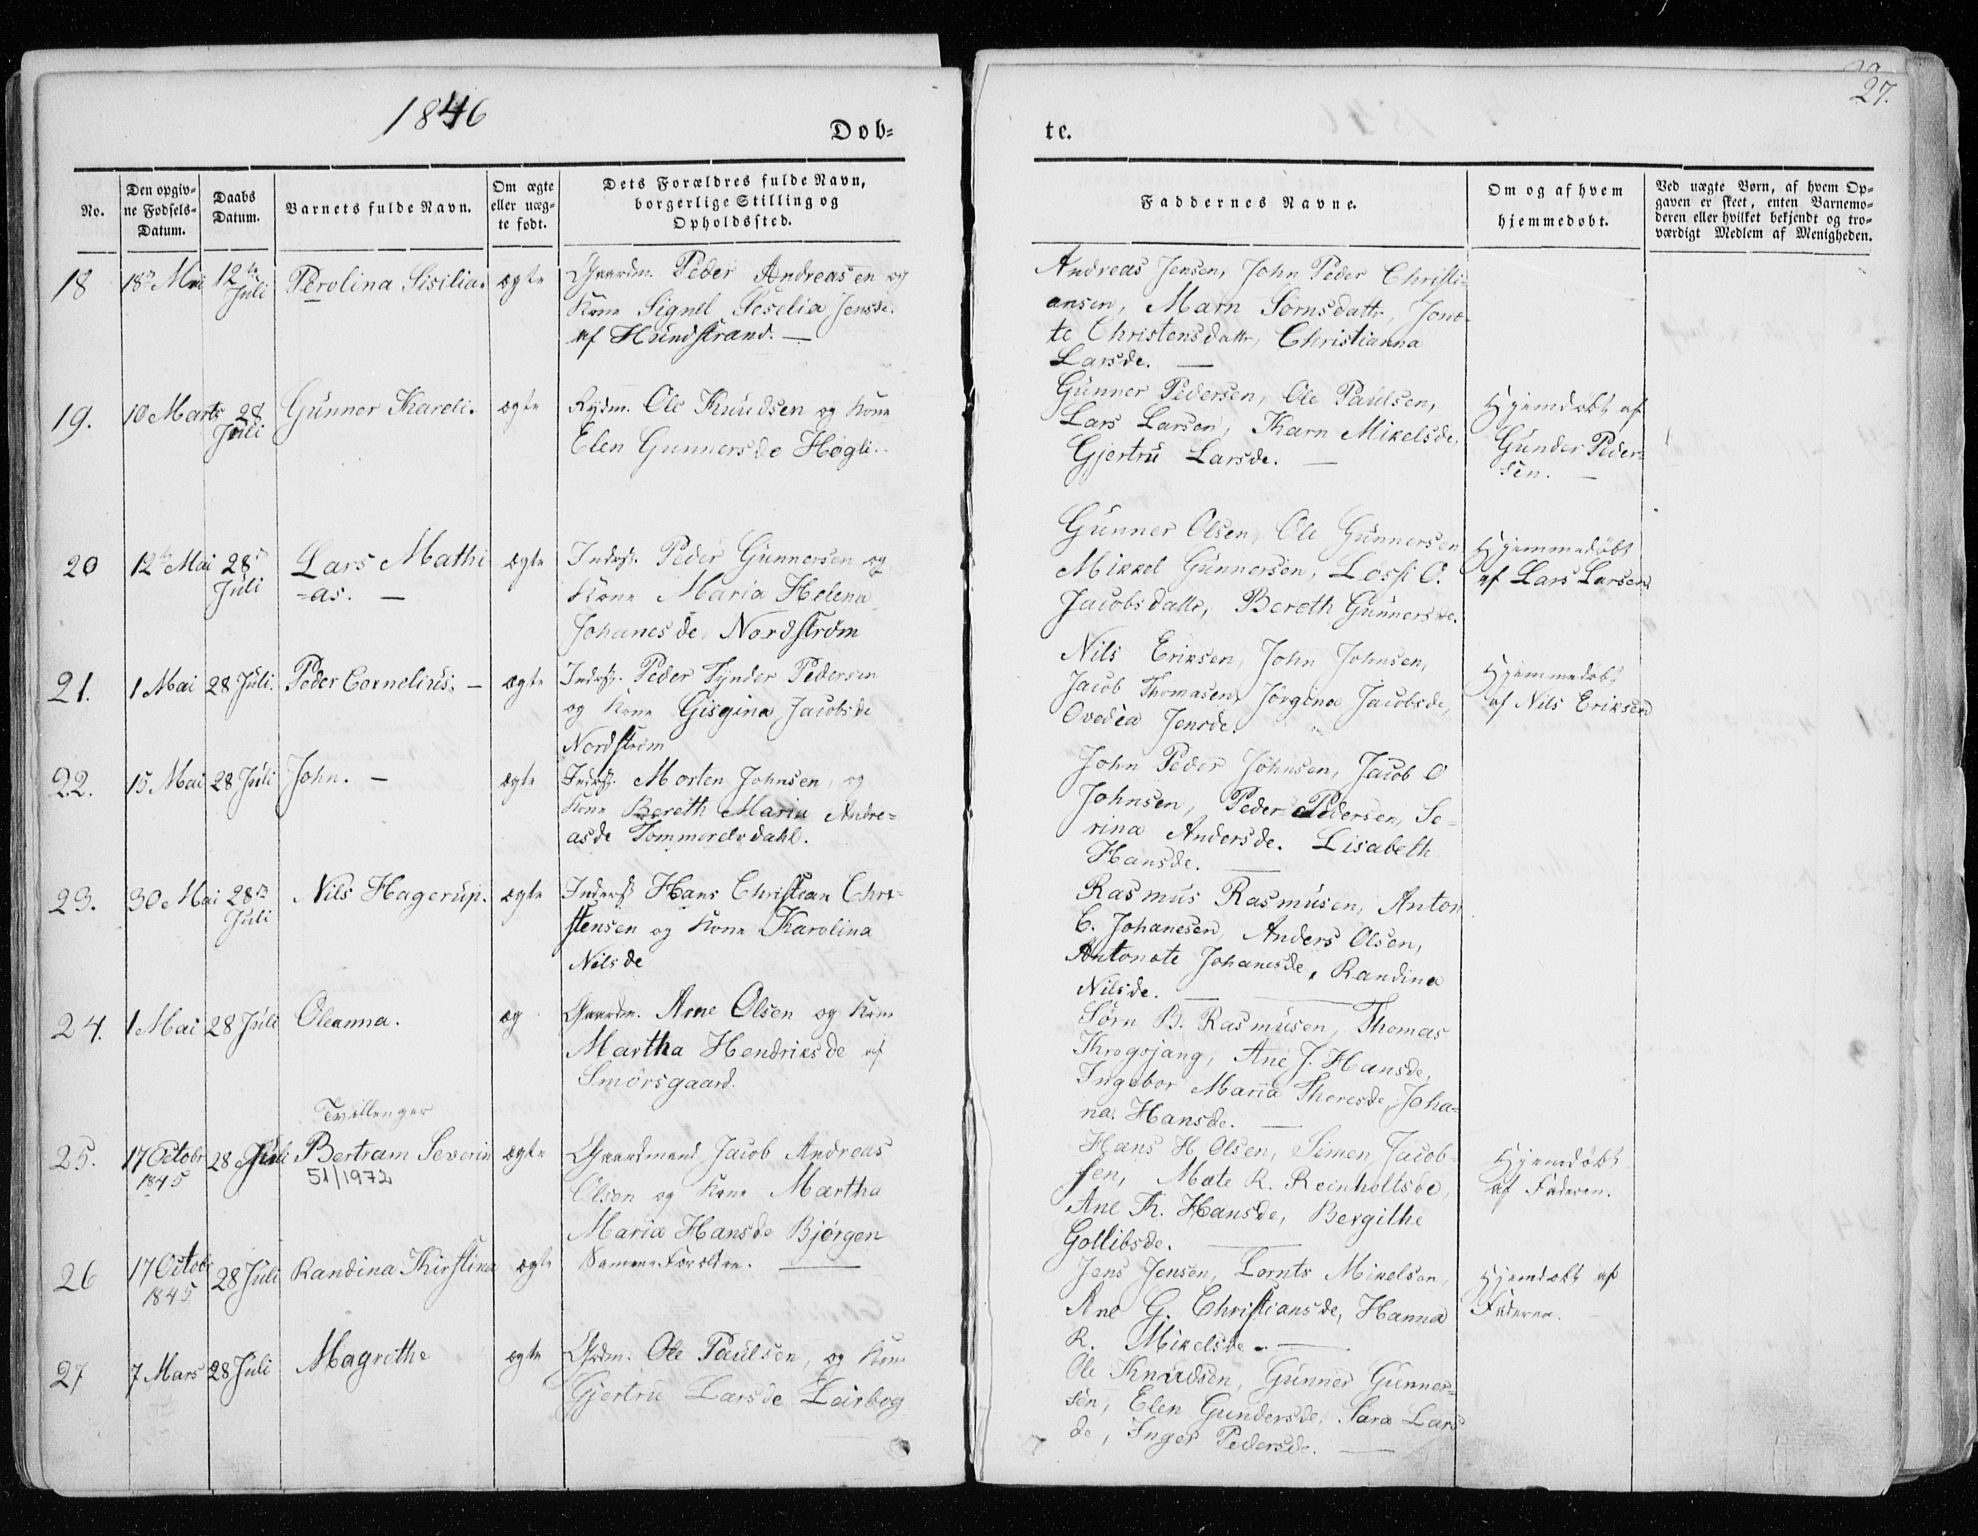 1846
27.
Døb-
te.
No.
Den opgiv-
ne Fødsels-
Datum.
Daabs
Datum.
Barnets fulde Navn.
Om ægte
eller uæg-
te født.
Dets Forældres fulde Navn,
borgerlige Stilling og
Opholdssted.
Faddernes Navne.
Om og af hvem
hjemmedøbt.
Ved uægte Børn, af hvem Op-
gaven er skeet, enten Barnemo-
deren eller hvilket bekjendt og tro-
værdigt Medlem af Menigheden.
18 18de Mai 12te Juli Perolina Sisilia. ægte Gaardm. Peder Andreassen og
Kone Signel Seselia Jensde.
af Hundstrand. —
Andreas Jensen, John Peder Christi-
ansen, Marn Sørnsdattr,
te Christensdattr, Christianna
Larsde. —
19. 10 Marts 28 Juli Gunner Kareli. ægte Rydm. Ole Knudsen og Kone
Elen Gunnersde Høgli.
Gunner Pedersen, Ole Paulsen,
Lars Larsen, Karn Mikelsde.
Gjertru Larsde. —
Hjemdøbt af
Gunder Peder-
sen. —
20 12te Mai 28de Juli Lars Mathi
=as. —
ægte Inderst. Peder Gunnersen og
Kone Maria Helena
Johanesde, Nordstrøm
Gunner Olsen, Ole Gunnersen
Mikkel Gunnersen, Lossi O.
Jacobsdattr, Bereth Gunnersde.
Hjemmedøbt
af Lars Larsen
21. 1 Mai 28 Juli. Peder Cornelius. — ægte Inderst. Peder Tynder Pedersen
og Kone Gisgina Jacobsde
Nordstrøm
Nils Eriksen, John Johnsen,
Jacob Thomasen, Jørgina Jacobsde,
Ovedea Jensde.
Hjemmedøbt
af Nils Eriksen
22. 15 Mai 28 Juli John. — ægte Inderst. Morten Johnsen, og
Kone Bereth Maria Andre=
asde Tømmerelvdahl.
John Peder Johnsen, Jacob O
Johnsen, Peder Pedersen, Se-
rina Andersde. Lisabeth
Hansde. —
23. 30 Mai 28de Juli Nils Hagerup. ægte Inderst Hans Christian Chri-
stensen og Kone Karolina
Nilsde
Rasmus Rasmusen, Anton
C. Johanesen, Anders Olsen,
Antonete Johanesde, Randina
Nilsde. —
24. 1 Mai 28 Juli Oleanna. æg Gaardm. Arne Olsen og Kone
Martha Hendriksde af
Smørsgaard.
Sørn B. Rasmusen, Thomas
Krogsjang, Ane J. Hansde,
Ingebor Maria Theresde, Joha-
na. Hansde. —
Tvillenger
25. 17 Octobr 1845 28 Juli Bertram Severin ægte Gaardmand Jacob Andreas
51/1972
Olsen og Kone Martha
Maria Hansde Bjørgen
Hans H. Olsen, Simen Jacob-
sen, Mate R. Reinholtsde,
Ane Kr. Hansde, Bergithe
Gollibsde. —
Hjemdøbt
af Faderen.
26 17 Octobr 1845 28 Juli Randina Kirstina ægte Samme Forældre. —
Jens Jensen, Lornts Mikelsen,
Ane G. Christiansde, Hanna
R. Mikelsde. —
Hjemdøbt af
Faderen.
27 7 Mars 28 Juli Magrethe ægte Grdm. Ole Paulsen, og Kone
Gjertru Larsde Leirbog
Ole Knudsen, Gunner Gunner-
sen, Elen Gundersde, Sara Lars
de, Inger Pedersde. —